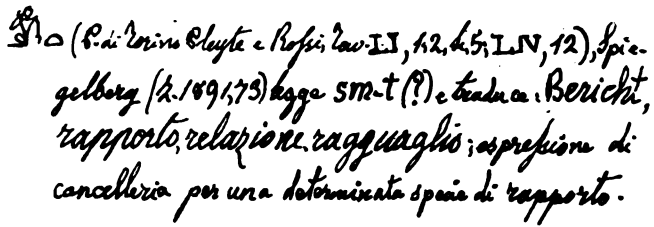 (P. di Torino Pleyte e Rossi, Tav. LI, 1,2, 4,5; LIV, 12), Spie-
gelberg (Z. 1891,73) legge sm-t (?) e traduce: Bericht,
rapporto, relazione, ragguaglio; espressione di
cancelleria per una determinata specie di rapporto.